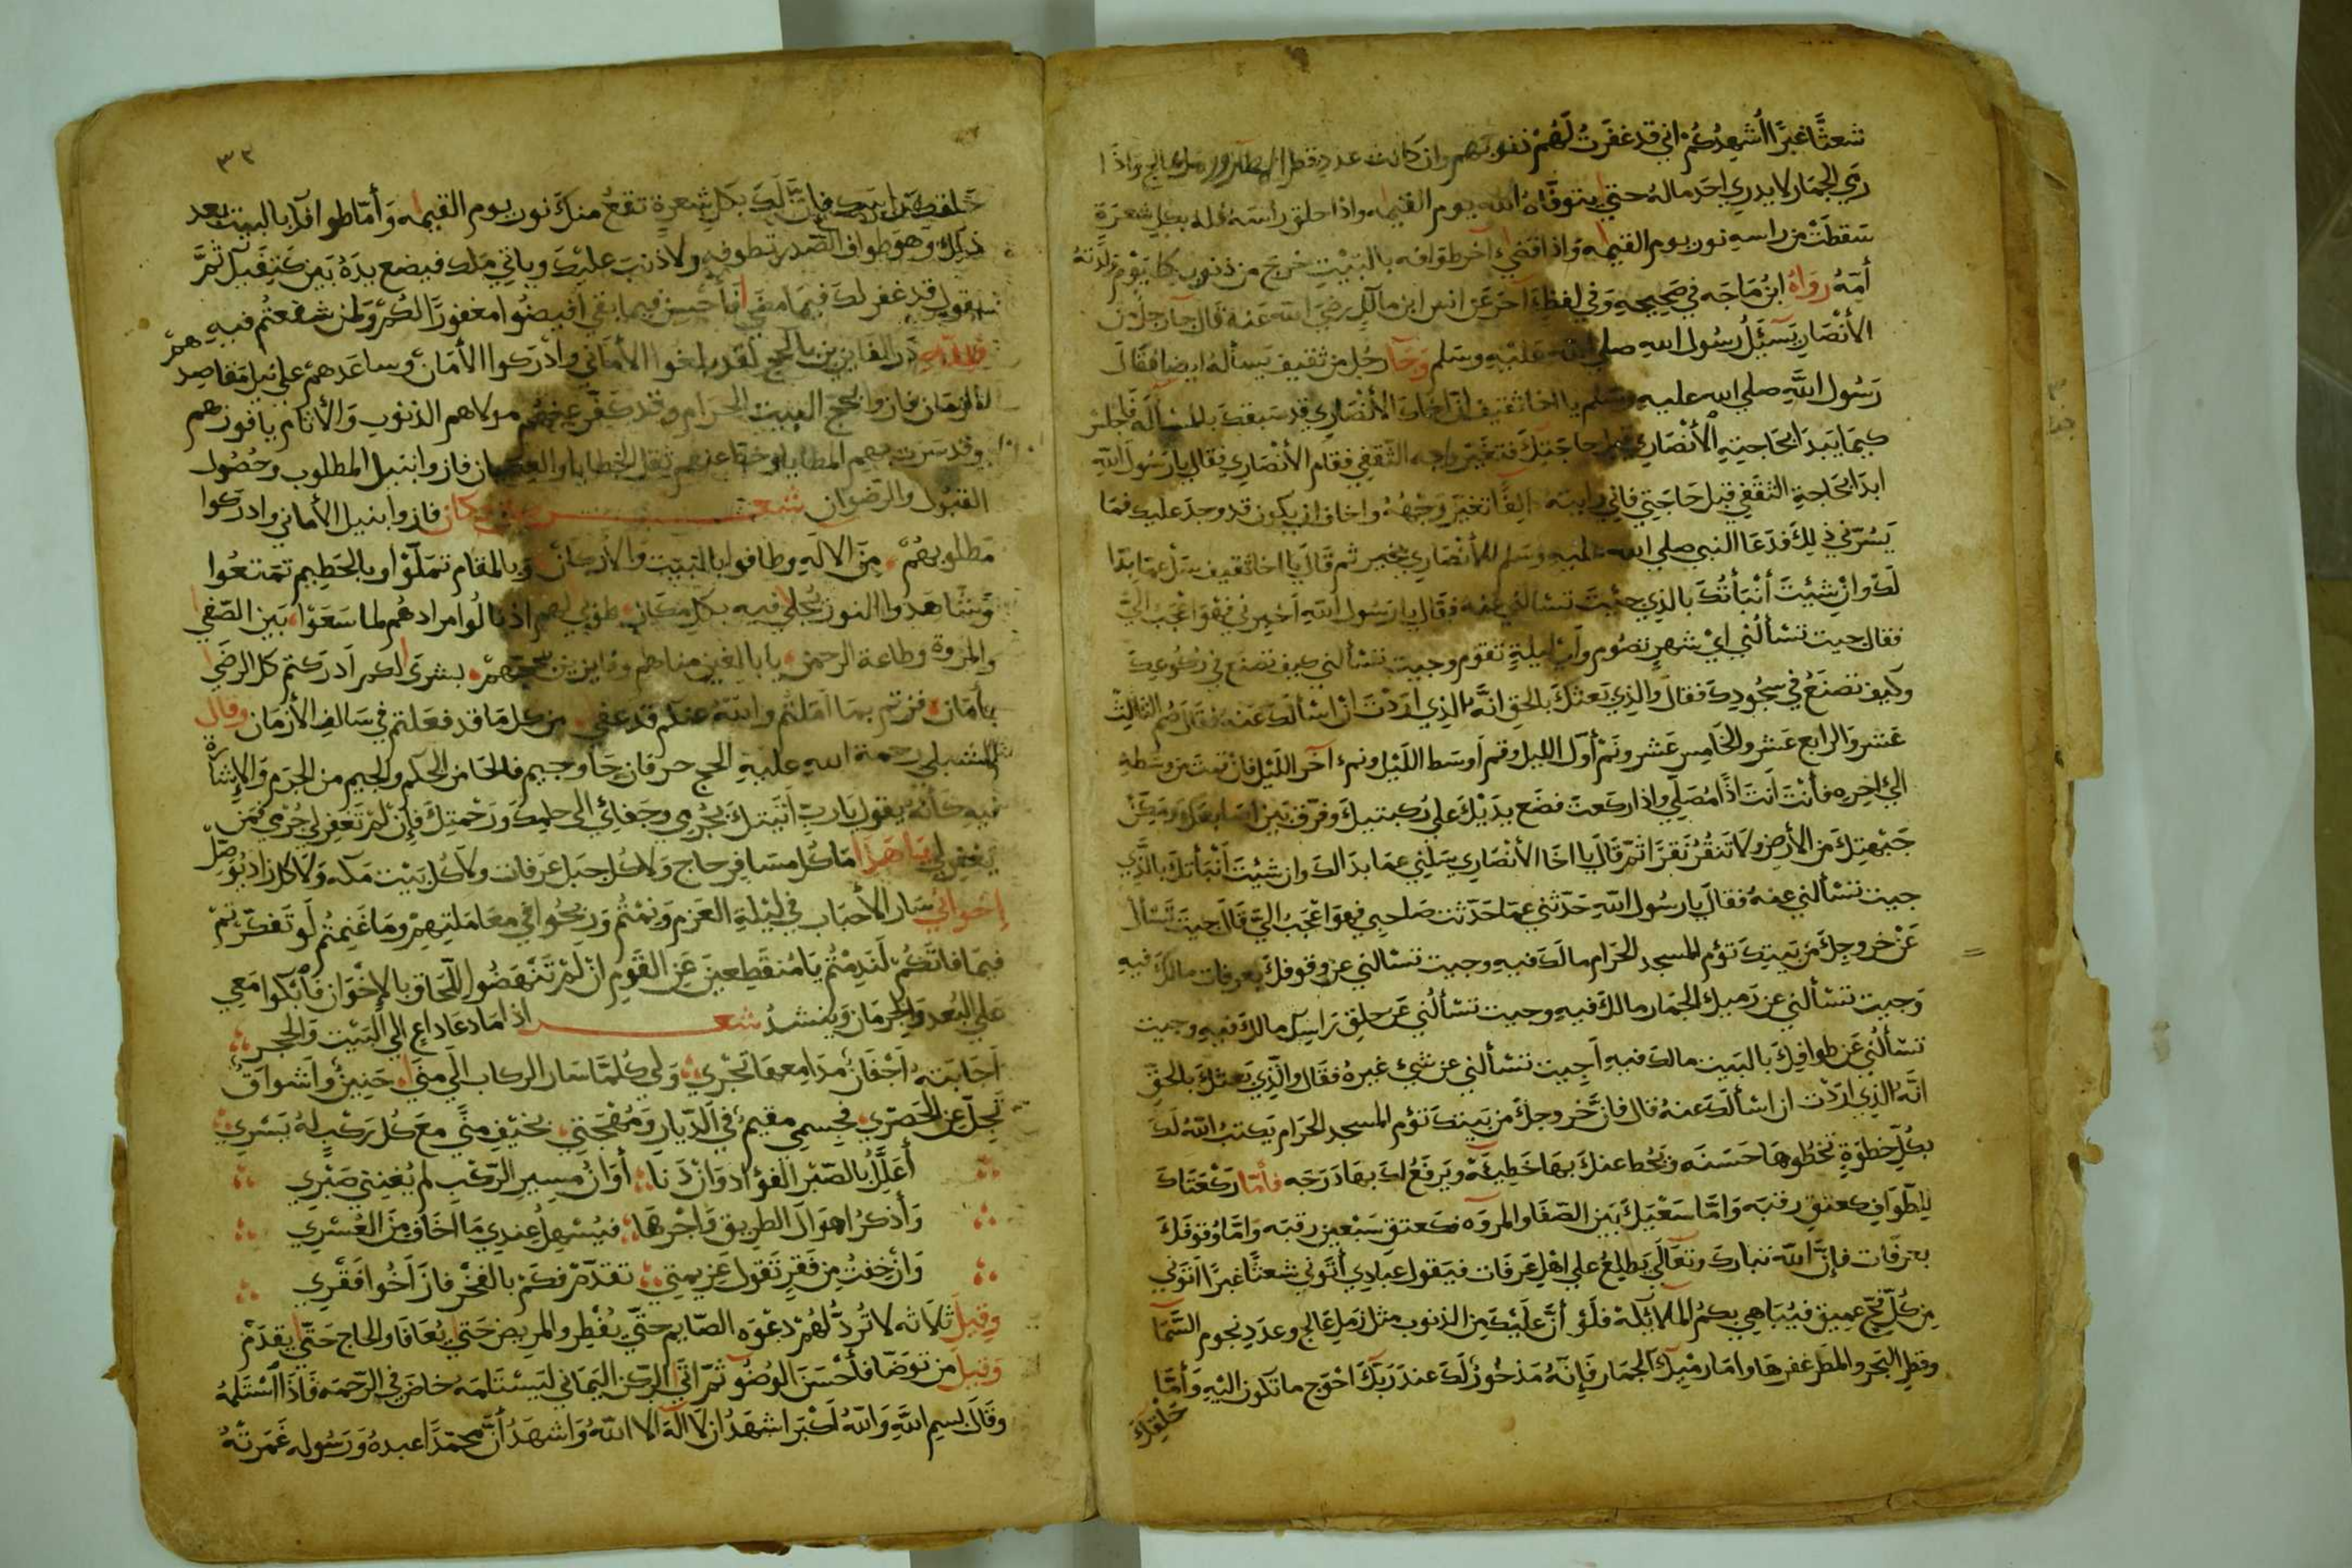 شعثًا غبرًا اُشهِدُكُمْ اني قد غفَرتُ لَهُمْ ذنوبهم وان كانت عدد قطر ورمل عالج واذا
رمَي الجمار لا يدري احَد مالهُ حتي يتوفّاهُ الله يوم القيمه واذا حلق راسَهُ فله بكل شعرَة
سَقطَتْ من راسهِ نور يوم القيمه وَاذا قضي اخر طوافه بالبَيْتِ خرج من ذنوبه كيَوْم وَلَدته
أمّهُ رواهُ ابنُ مَاجَه في صَحِيحِهِ وَفي لفظٍ آخَر عَن انس ابن مالِكٍ رضيَ الله عَنه قال جآء رجل من
الأنْصَارِ يَسْئَلُ رسُول اللهِ صلي الله عَليْهِ وسَلم وَجآء رجُل من ثقيف يَسألهُ ايضا فقالَ
رَسُول اللَّهِ صلي الله عليهِ وسَلم يا اخا ثقيف ان اخاك الأنصَاري قد سَبقكَ بالمسألة فاجلسْ
كيمَا يَبدَا بحَاجتِهِ الأنْصَارِي قبل حاجَتِكَ فتغيّر وجه الثقفي فقام الأنصَاري فقال يا رَسُول الله
ابدَا بحَاجةِ الثقَفي قبل حَاجَتِي فاني رايته تغيّر وَجْهُهُ واخاف ان يكون قد وجدَ عليك فمَا
يَسُرّني ذلِكَ فدَعَا النبي صلي الله عليه وسَلم للأنْصَارِي بخير ثم قالَ يا اخا ثقيف سَل عمَا بدَا
لَكَ وَانْ شيْتَ أنْبَأتُكَ بالذِي جيْتَ تسْألني عَنهُ فقالَ يا رَسُول اللهِ اَخبِرني فهُوَ اعْجَبُ اليَّ
فقال جيت تسْألُني ايْ شهرٍ تصُوم وايْ ليلةٍ تقوم وجيت تسْألني كيف تصنَع في ركوعِكَ
وكيف تصنَعُ في سجُودِكَ فقالَ والذِي بَعثكَ بالحقِ انّهُ الذِي اردْتُ انْ اسْألكَ عَنه فقال صُم الثالِثْ
عَشر والرابع عَشر والخامِس عَشر ونَمْ أوَل الليل وقم اَوسَط اللَيْل ونم اخر اللَيْل فان قمت من وسَطهِ
الي اخِرِهِ فأنتْ اَنتَ اذًا مُصَلي واذا ركعتَ فضَع يدَيْكَ علي ركبتيكَ وفرّق بَين اصَابعَك ومَكّنْ
جَبْهتِكَ من الأرضِ ولا تَنقُرْ نَقرًا ثمّ قالَ يا اخَا الأنْصَارِي سَلني عمَا بدَا لكَ وان شيْتَ أنْبأتكَ بالَّذِي
جيت تسْألني عنهُ فقالَ يا رسُول اللهِ حَدّثني عمّا حَدّثت صَاحبي فهوَ اعْجَبُ اليَّ قالَ جيت تَسْأل
عَنْ خروجِكَ من بَيتِكَ تؤم المسجد الحَرام مالكَ فيهِ وجيت تسْالني عن وقوفكَ بعرفات مالكَ فيهِ
وَجيت تسْألني عن رَميِكَ الجمَار مالكَ فيهِ وجيت تسْألُني عَن حَلقِ رَاسِكَ مالكَ فيهِ وجيت
تسْألُني عَن طوافِكَ بالبَيت مالكَ فيهِ اَجيت تسْألني عن شيْ غيرهُ فقَال والَّذِي بَعثكَ بالحقِ
انّهُ الذِي ارَدْت ان اسْألكَ عنهُ قال فانْ خروجكَ من بَيتكَ تؤم المسجد الحَرام يَكتبُ اللهُ لكَ
بكُلّ خطوَةٍ تخطُوها حَسَنه ويُحط عنكَ بهَا خَطِيئه ويَرفَعُ لكَ بهَا دَرَجَه فأمّا ركْعَتَاكَ
للِطّوَافِ كعتقِ رقبَه وَامّا سَعْيَكَ بَين الصّفَا والمروَه فكعتقِ سَبْعين رقبَه وَامّا وُقوفَكَ
بعَرفَات فإنّ اللّهَ تبَاركَ وَتعَالَي يَطلِعُ علي اهْلِ عَرَفَات فيَقول عبادِي أتَوني شعثًا غبرًا اتوني
مِن كُلّ فجّ عميق فيُبَاهِي بكمُ الملائكة فلَو أنّ عَلَيْكَ من الذنوب مثل رَملِ عَالج وعدَد نجوم السّمَا
وقطر البَحر والمطر غفرهَا وامَا رمْيكَ الجمَار فَإنّهُ مَذخُورٌ لكَ عندَ رَبّكَ احْوَج ما تكون اليْهِ وَأمّا
حَلقكَ
٣٣
حَلقكَ راسَك فإنّ لكَ بكل شعرةٍ تقعُ منكَ نور يوم القيمه وَأمّا طوافكَ بالبيت بعد
ذلِكَ وهوَ طواف الصّدر تطوفه ولا ذنبَ عليْكَ وياتي ملك فيضع يدَهُ بَين كتِفَيكَ ثمَّ
يقول قد غفر لكَ فيمَا مضَي فأحْسِن فيما بقي افيضُوا مغفورًا لكُمْ وَلمن شفعتُم فيهِ
در الفايزين بالحج لقد بلغوا الأمَاني وأدْركوا الأمَان وساعَدَهمْ علي نيل مَقاصِدهمّ
الزمان فازوا بحج البيت الحرام وقد كفّر عنهم مولاهم الذنوب والأثام يا فوزهم
وقد سَرت بهم المطايا وحط عنهم ثقل الخطايا والعصيان فازوا بنيل المطلوب وحُصُول
القبُول والرضوان شعــر فازوا بنيل الأماني وادركوا
مَطلوبهُمْ مِنَ الالَهِ وطافوا بالبَيت والأركان وبالمقام تمَلّوْا وبالحَطِيم تمَتعُوا
وشاهَدوا النور تجلي فيه بكل مَكان طوبي لهم اذ نالُوا مرادهُم لما سَعَوْا بَين الصّفي
والمروة وطاعة الرحمن يا بالغين مناهم وفايزين بحجهِمْ بشرَي لكم اَدرَكتم كل الرضَي
بأمَان فزتم بمَا اَمَلتُم واللهُ عنكم قد عفي من كل مَا قد فعَلتم في سَالف الأزمَان وقال
الشبلي رحمة الله عليهِ الحج حرفان حَا وجيم فالحا من الحلم والجيم من الجرم والإشارة
فيهِ كأنهُ يقول يا ربّ اَتَيتكَ بجُرمِي وجَفائي الي حلمِكَ وَرَحْمتِكَ فإن لمْ تَغفِر لي جُرمي فمَن
يَغفِر لي يا هَذا مَا كل مسَافِرٍ حاج وَلا كُل جبَل عَرفات ولا كُل بَيْت مَكه وَلا كل زاد يُوَصّل
إخواني سَار الأحبَاب في ليْلةِ العَزم ونِمْتُم وَرَبحُوا في معَاملتِهِمْ ومَا غَنِمتُم لَو تَفكّرتمْ
فيمَا فاتكمْ لَندِمْتُم يَا مُنقطِعينَ عَن القَومِ انْ لمْ تَنْهَضُوا للّحَاق بالإخْوَان فَابْكوا مَعِي
علي البُعد والحرمَان وَينشدُ شعــر اذا مَا دعَا داعٍ الي البَيْت وَالحجر
اَجَابَتهُ اَجْفَانٌ مدَامِعهَا تَجْري وَلي كُلمَّا سَار الركاب الَي مِنَي حَنِينٌ وأشواقٌ
تَجلّ عن الحَصَرِي فجِسمي مقيمٌ في الدّيارِ وَمُهْجَتي بخيْفِ مِنًي معَ كُل رَكْبٍ لهُ يَسْري
أعَلّلُ بالصّبْر الفؤاد وَانْ دَنا أوَانْ مسِير الرّكب لم يُغنِني صَبْرِي
وَأذكرُ اهوَالَ الطريق وَاجْرهَا فيُسْهلُ عِندِي مَا اَخَاف مِنَ العُسْرِي
وَانْ خفتُ مِن فَقرٍ تَقول عَزيمتي تقدّم فكَمْ بالفخْر فازَ اَخُوا فَقْرِي
وقِيلَ ثلاثه لا تُردُّ لَهُمْ دعْوَه الصّايم حتّي يُفْطِر والمريض حَتي يُعَافَا والحاج حَتّي يقدَمْ
وَقيلَ من توَضّا فأحْسَنَ الوُضُو ثمّ اتَي الرّكن اليَمَاني ليَسْتَلمَه خاضَ في الرّحمَه فَاذَا اسْتَلمَهُ
وقَالَ بسمِ اللّهِ وَاللهُ اَكْبَر اشهَدُ ان لا الهَ الا اللهُ وَاشهَدُ أنّ محَمّدًا عبدهُ وَرَسُوله غَمَرتْهُ